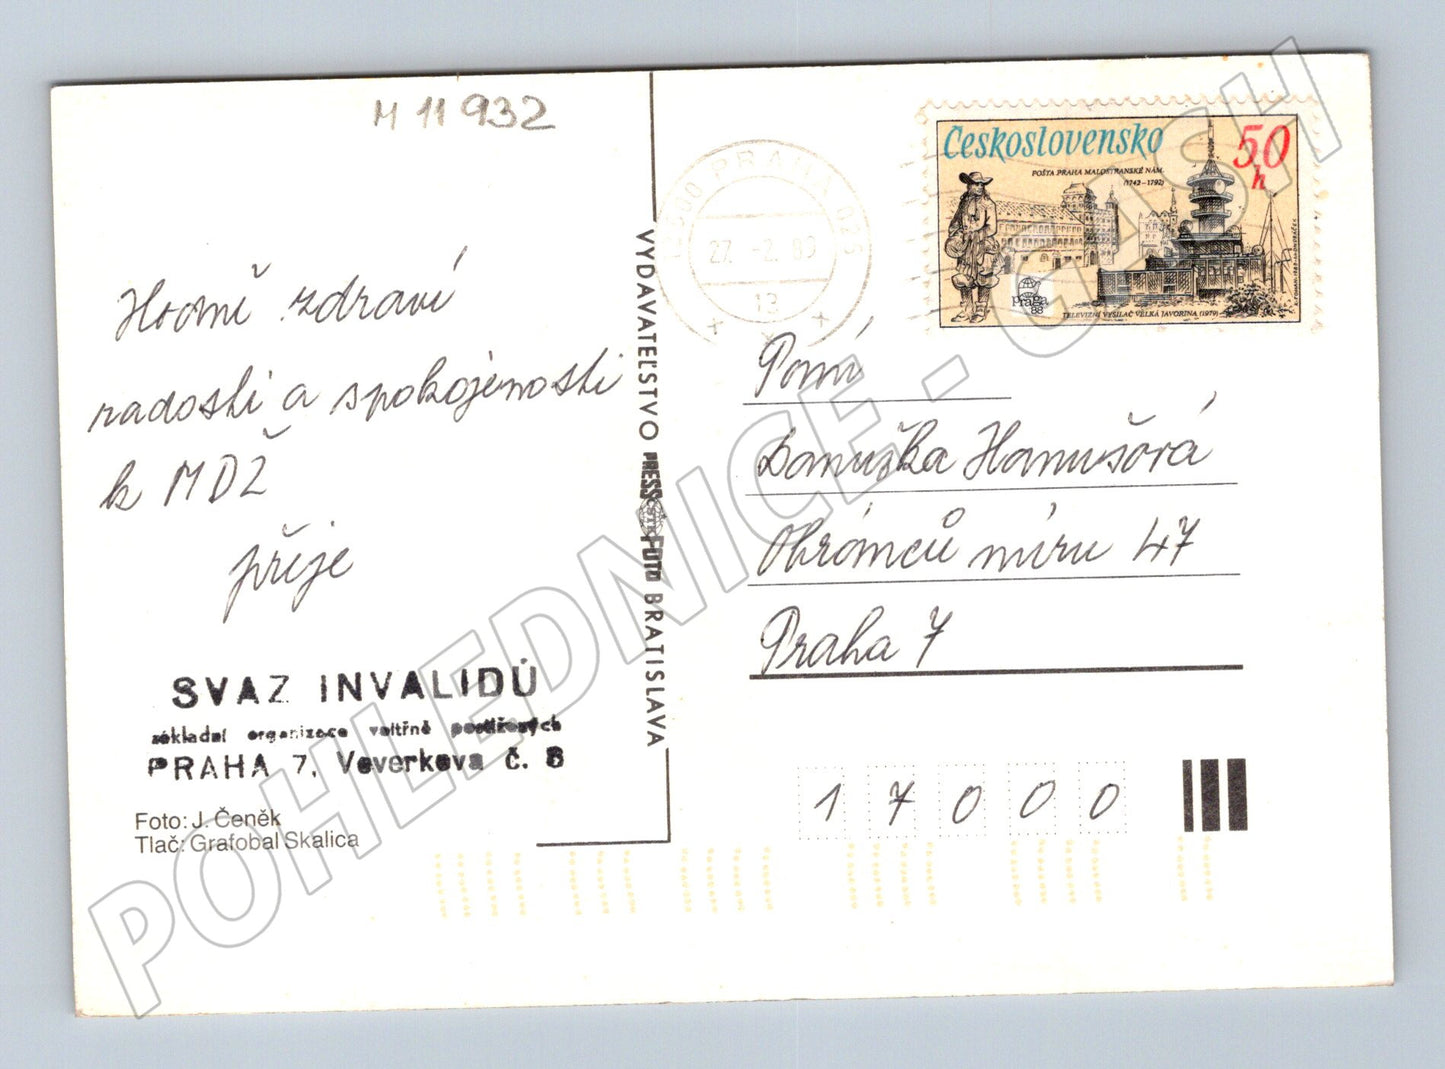 M 11 932
Hodně zdraví
radosti a spokojenosti
k MDŽ
přeje
SVAZ INVALIDŮ
základní organizace vnitřně postižených
PRAHA 7, Veverkova č. 8
Foto: J. Čeněk
Tlač: Grafobal Skalica
VYDAVATEĽSTVO PRESSFOTO BRATISLAVA
ČSTK
PRAHA 025
27. -2. 89
13
Československo
50
h
POŠTA PRAHA MALOSTRANSKÉ NÁM.
(1742–1792)
Praga
88
TELEVIZNÍ VYSÍLAČ VELKÁ JAVORINA (1979)
Paní
Danuška Hanušová
Obránců míru 47
Praha 7
17000
POHLEDNICE - GASH